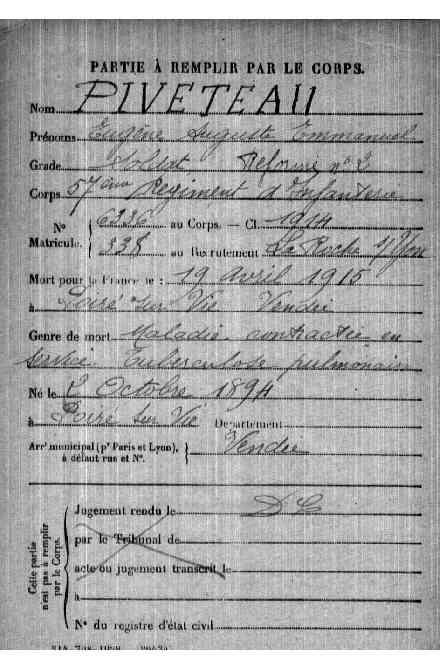 PARTIE À REMPLIR PAR LE CORPS.
Nom PIVETEAU
Prénoms Eugène Auguste Emmanuel
Grade Soldat Réformé n° 2
Corps 57ème Régiment d'Infanterie
N° Matricule. 6336 au Corps. — Cl. 1914
338 au Recrutement La Roche s/Yon
Mort pour la France le : 19 avril 1915
à Poiré sur Vie Vendée
Genre de mort Maladie contractée en
service Tuberculose pulmonaire
Né le 2 Octobre 1894
à Poiré sur Vie Département
Vendée
Arr' municipal (p' Paris et Lyon),
à défaut rue et N°.
Cette partie
n'est pas à remplir
par le Corps.
Jugement rendu le
par le Tribunal de
acte ou jugement transcrit le
à
N° du registre d'état civil